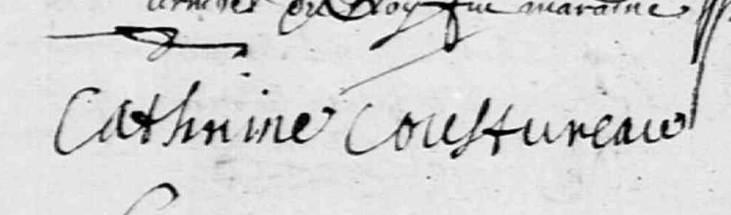 du Roy fut maraine
Cathrine Coustureau